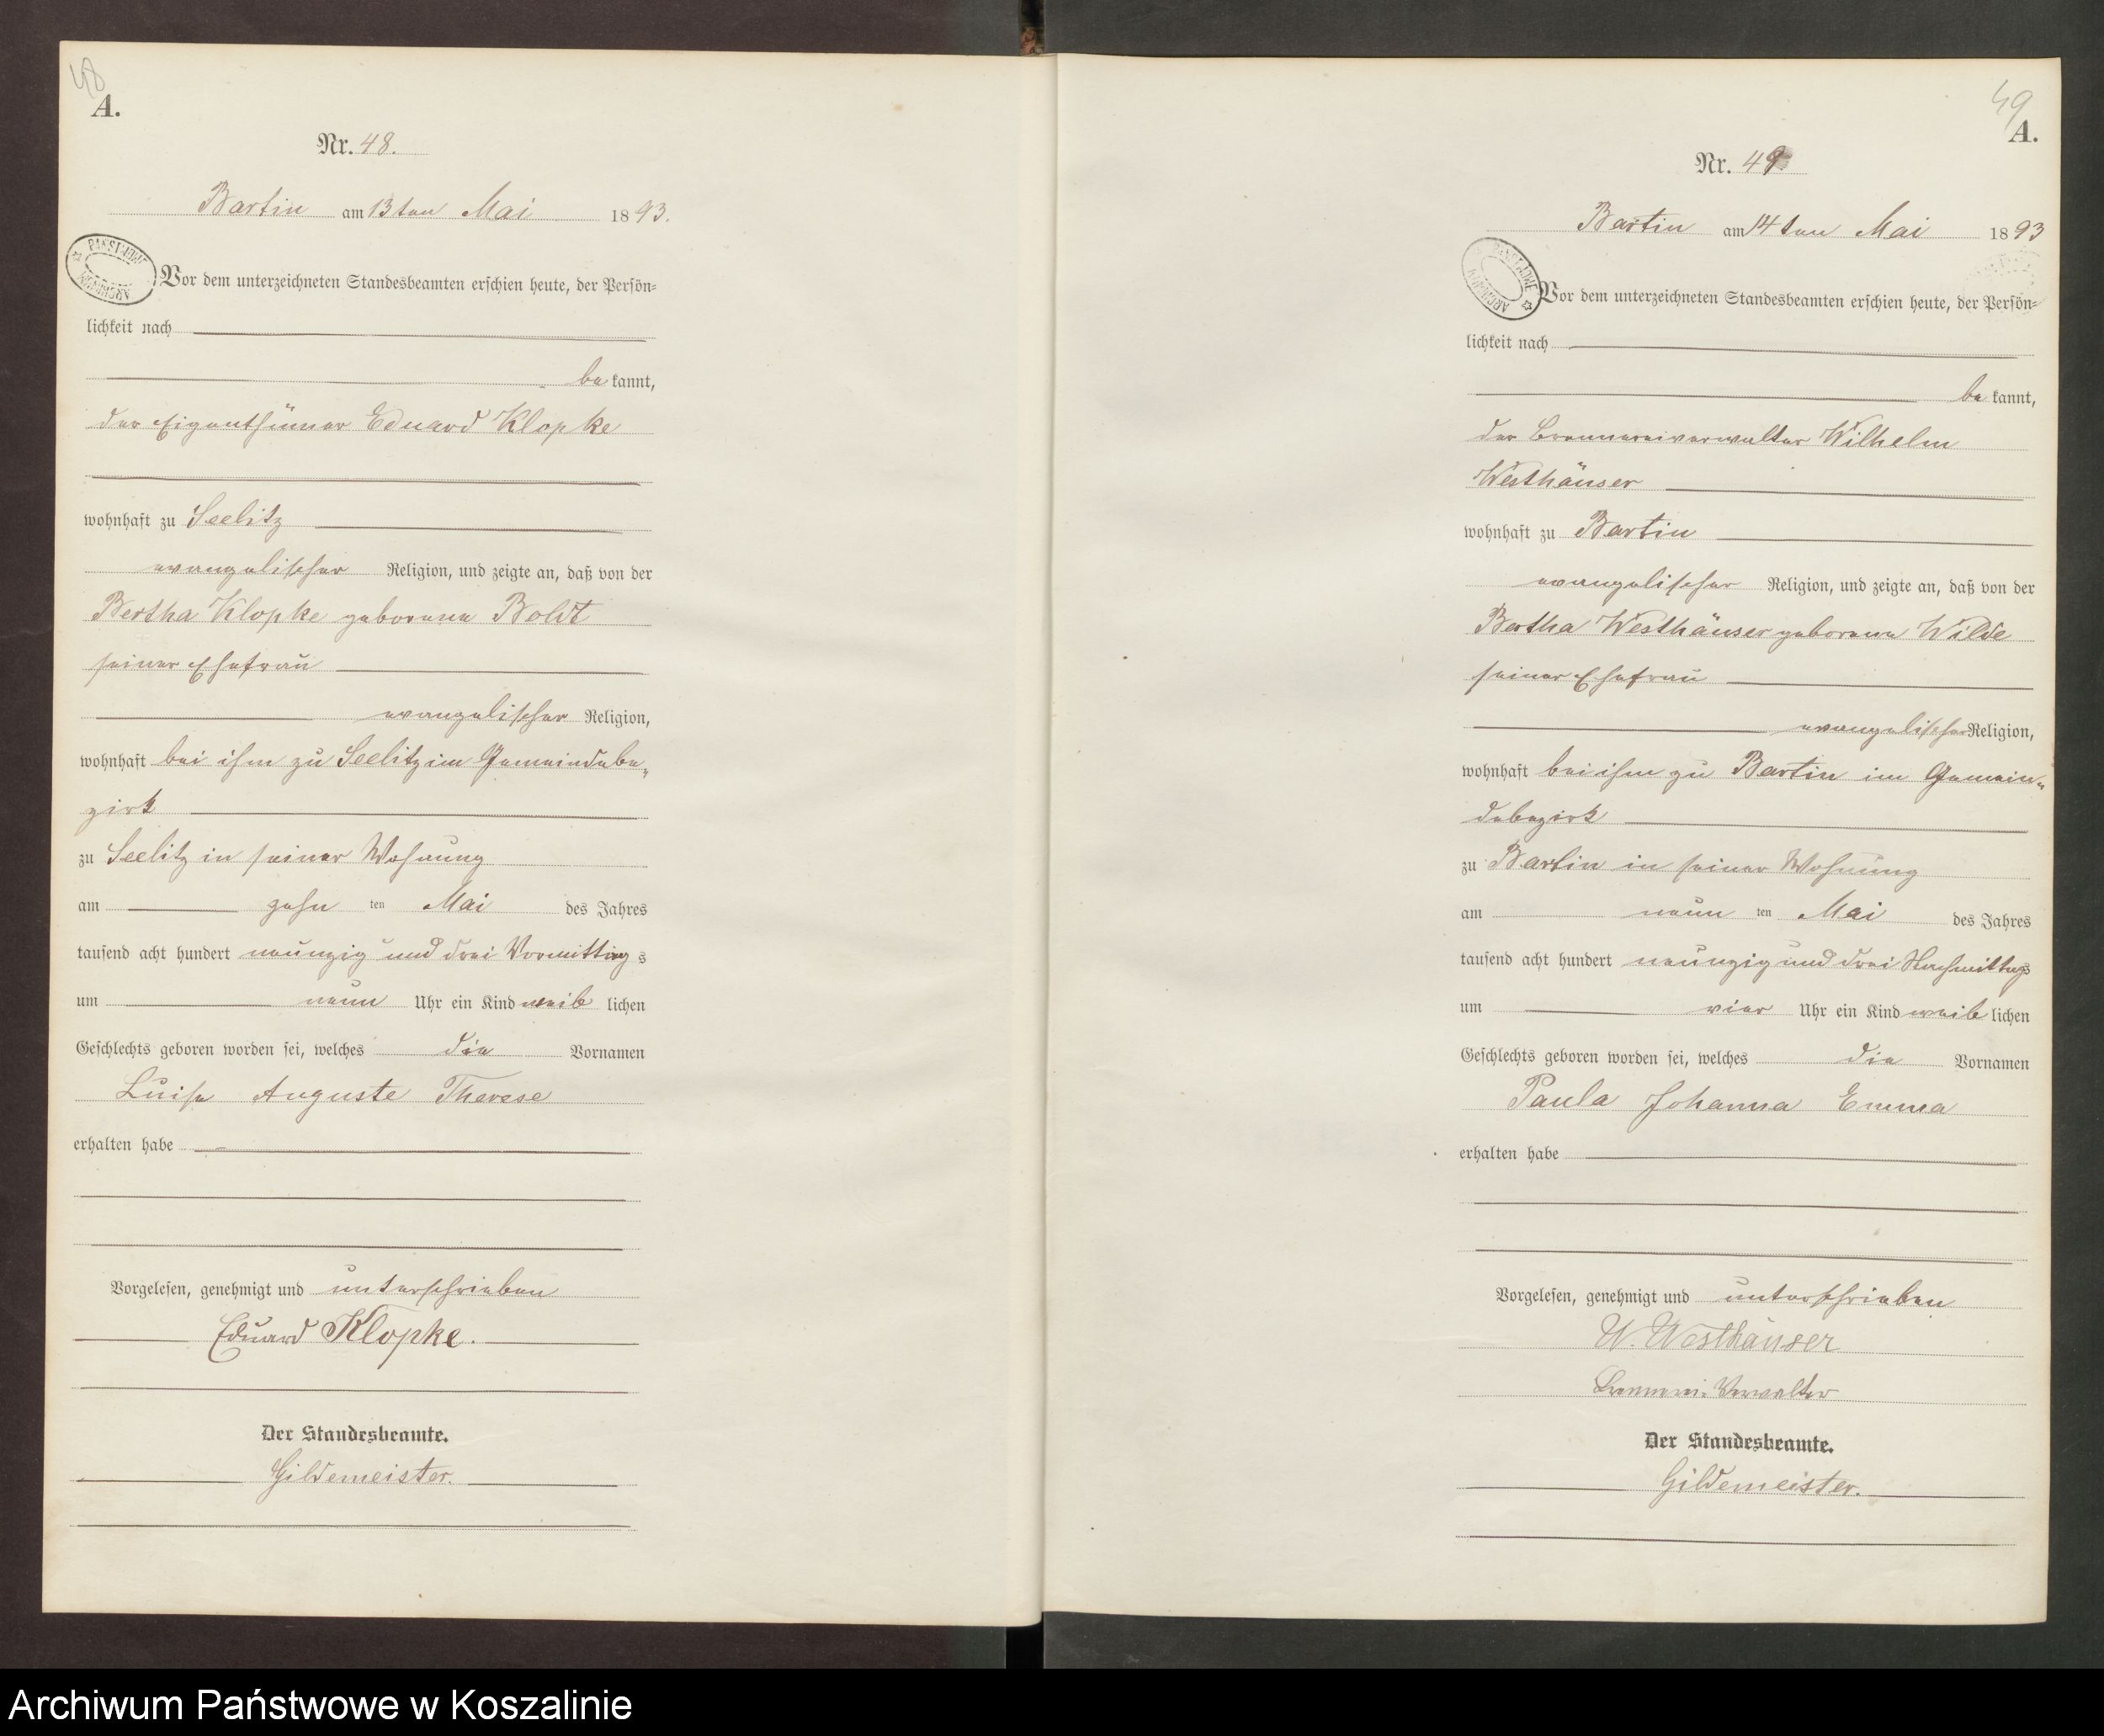 48
A.
Nr. 48.
Bartin am 13ten Mai 1893.
Vor dem unterzeichneten Standesbeamten erschien heute, der Persön=
lichkeit nach
bekannt,
der Eigenthümer Eduard Klopke
wohnhaft zu Seelitz
evangelischer Religion, und zeigte an, daß von der
Bertha Klopke geborene Boldt
seiner Ehefrau
evangelischer Religion,
wohnhaft bei ihm zu Seelitz im Gemeindebe-
zirk
zu Seelitz in seiner Wohnung
am zehn ten Mai des Jahres
tausend acht hundert neunzig und drei Vormittags
um neun Uhr ein Kind weiblichen
Geschlechts geboren worden sei, welches die Vornamen
Luise Auguste Therese
erhalten habe
Vorgelesen, genehmigt und unterschrieben
Eduard Klopke.
Der Standesbeamte.
Gildemeister.
49
A.
Nr. 49
Bartin am 14ten Mai 1893
Vor dem unterzeichneten Standesbeamten erschien heute, der Persön=
lichkeit nach
bekannt,
der Brennereiverwalter Wilhelm
Westhäuser
wohnhaft zu Bartin
evangelischer Religion, und zeigte an, daß von der
Bertha Westhäuser geborene Wilde
seiner Ehefrau
evangelischer Religion,
wohnhaft bei ihm zu Bartin im Gemein-
debezirk
zu Bartin in seiner Wohnung
am neun ten Mai des Jahres
tausend acht hundert neunzig und drei Nachmittags
um vier Uhr ein Kind weiblichen
Geschlechts geboren worden sei, welches die Vornamen
Paula Johanna Emma
erhalten habe
Vorgelesen, genehmigt und unterschrieben
W. Westhäuser
Brennerei-Verwalter
Der Standesbeamte.
Gildemeister.
Archiwum Państwowe w Koszalinie